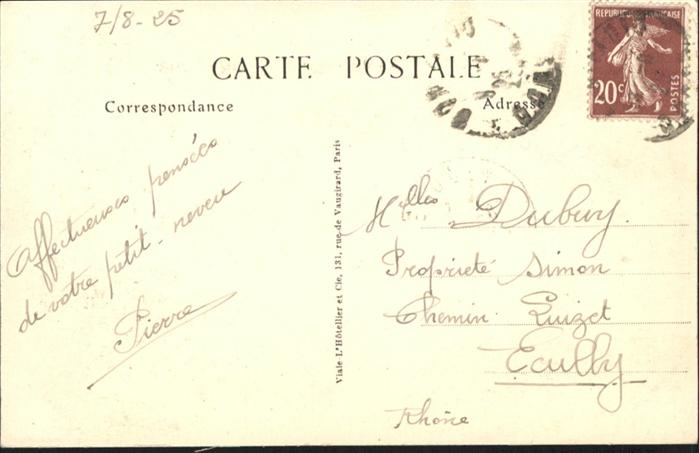 7/8-25
REPUBLIQUE FRANÇAISE
20c
POSTES
CARTE POSTALE
Correspondance
Adresse
Affectueuses pensées
de votre petit-neveu
Pierre
Viale-L'Hôtellier et Cie, 131, rue de Vaugirard, Paris
Melles Dubuy.
Proprieté Simon
Chemin Guizet
Ecully
Rhône